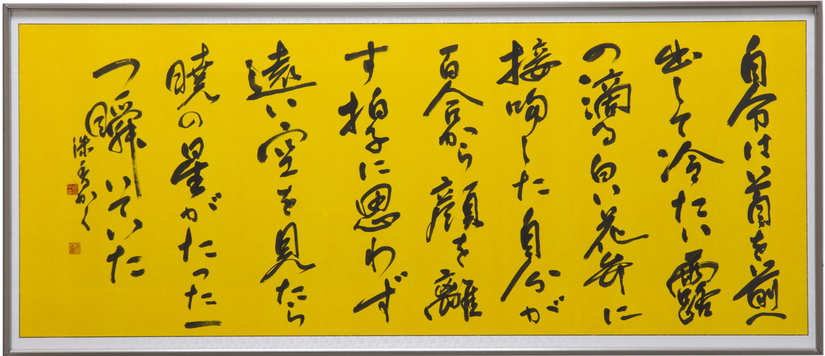 自分は首を前へ
出して冷たい露
の滴る白い花弁に
接吻した自分が
百合から顔を離
す拍子に思わず
遠い空を見たら
暁の星がたった一
つ瞬いていた